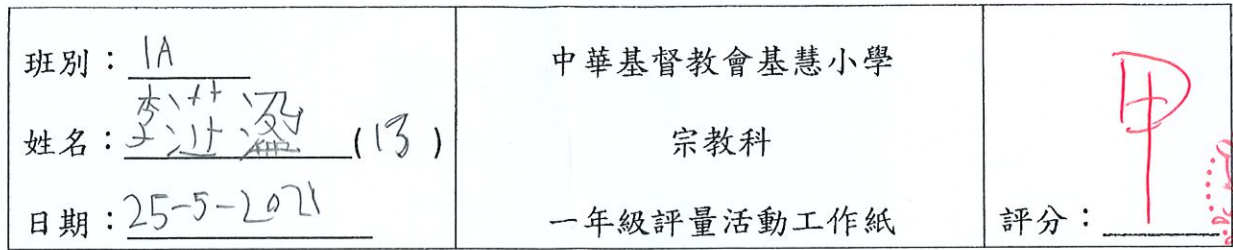 班別：1A
姓名：李 (13)
日期：25-5-2021
中華基督教會基慧小學
宗教科
一年級評量活動工作紙
評分：甲